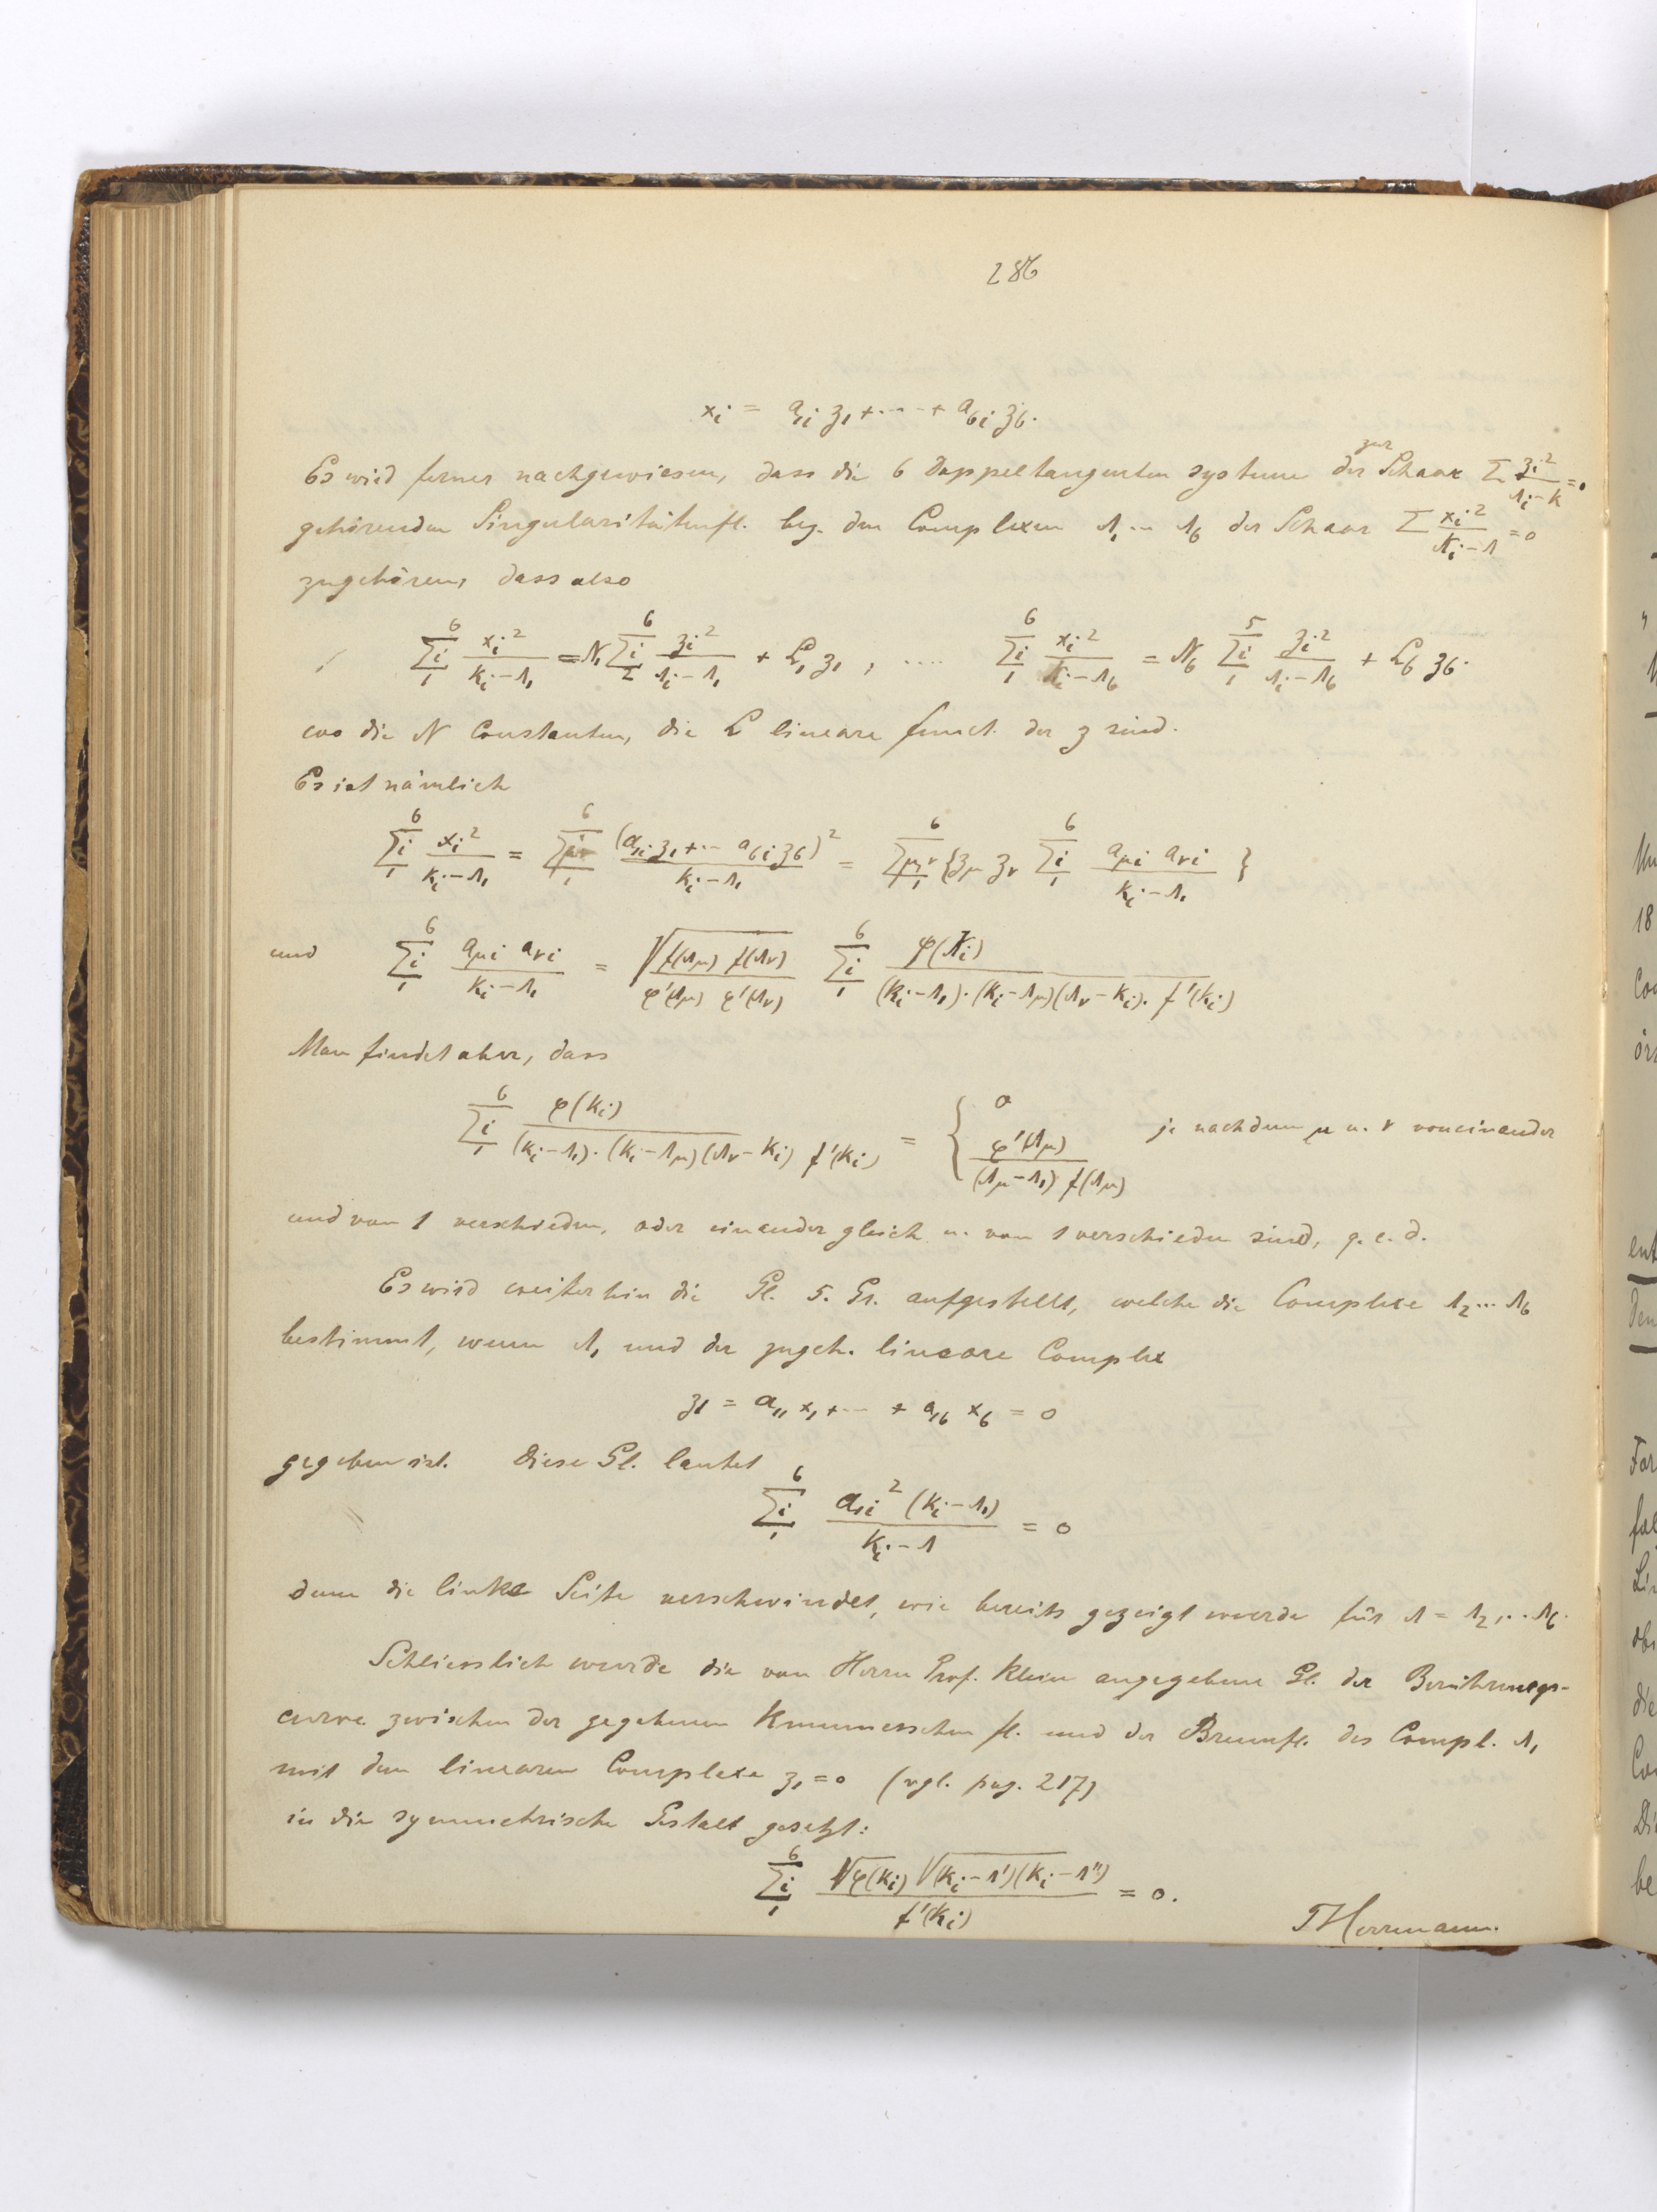 286
x_i = a_{1i} z_1 + ··· + a_{6i} z_6.
zur
Es wird ferner nachgewiesen, dass die 6 Doppeltangentensysteme der Schaar Σ z_i²/(λ_i − k) = 0
gehörenden Singularitätenfl. bez. den Complexen λ_1 ... λ_6 der Schaar Σ x_i²/(k_i − λ) = 0
zugehören, dass also
Σ_{i=1}^{6} x_i²/(k_i − λ_1) = N_1 Σ_{i=2}^{6} z_i²/(λ_i − λ_1) + L_1 z_1 , .... Σ_{i=1}^{6} x_i²/(k_i − λ_6) = N_6 Σ_{i=1}^{5} z_i²/(λ_i − λ_6) + L_6 z_6.
wo die N Constanten, die L lineare funct. der z sind.
Es ist nämlich
Σ_{i=1}^{6} x_i²/(k_i − λ_1) = Σ_{i=1}^{6} (a_{1i} z_1 + ·· a_{6i} z_6)²/(k_i − λ_1) = Σ_{μν=1}^{6} { z_μ z_ν Σ_{i=1}^{6} a_{μi} a_{νi}/(k_i − λ_1) }
und Σ_{i=1}^{6} a_{μi} a_{νi}/(k_i − λ_1) = √(f(λ_μ) f(λ_ν)/φ'(λ_μ) φ'(λ_ν)) Σ_{i=1}^{6} φ(k_i)/((k_i − λ_1)·(k_i − λ_μ)(λ_ν − k_i). f'(k_i))
Man findet aber, dass
Σ_{i=1}^{6} φ(k_i)/((k_i − λ_1)·(k_i − λ_μ)(λ_ν − k_i) f'(k_i)) = { 0 ; φ'(λ_μ)/((λ_μ − λ_1) f(λ_μ)) je nachdem μ u. ν voneinander
und von 1 verschieden, oder einander gleich u. von 1 verschieden sind, q. e. d.
Es wird weiterhin die Gl. 5. Gr. aufgestellt, welche die Complexe λ_2 ··· λ_6
bestimmt, wenn λ_1 und der zugeh. lineare Complex
z_1 = a_{11} x_1 + ··· + a_{16} x_6 = 0
gegeben ist. Diese Gl. lautet
Σ_{i=1}^{6} a_{1i}² (k_i − λ_1)/(k_i − λ) = 0
denn die linke Seite verschwindet, wie bereits gezeigt wurde für λ = λ_2, ·· λ_6.
Schliesslich wurde die von Herrn Prof. Klein angegebene Gl. der Berührungs-
curve zwischen der gegebenen Kummerschen fl. und der Brennfl. des Compl. λ_1
mit dem linearen Complexe z_1 = 0 (vgl. pag. 217)
in die symmetrische Gestalt gesetzt:
Σ_{i=1}^{6} √φ(k_i) √(k_i − λ')(k_i − λ'')/f'(k_i) = 0.
THerrmann.